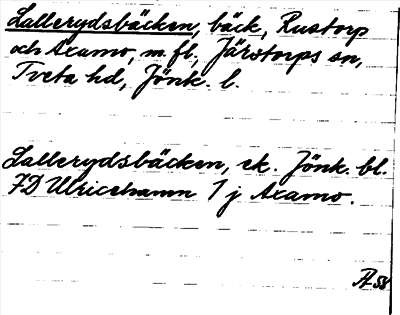 Lallerydsbäcken, bäck, Rustorp
och Axamo, m. fl., Järstorps sn,
Tveta hd, Jönk. l.
Lallerydsbäcken, ek. Jönk. bl.
7D Ulricehamn 1 j Axamo.